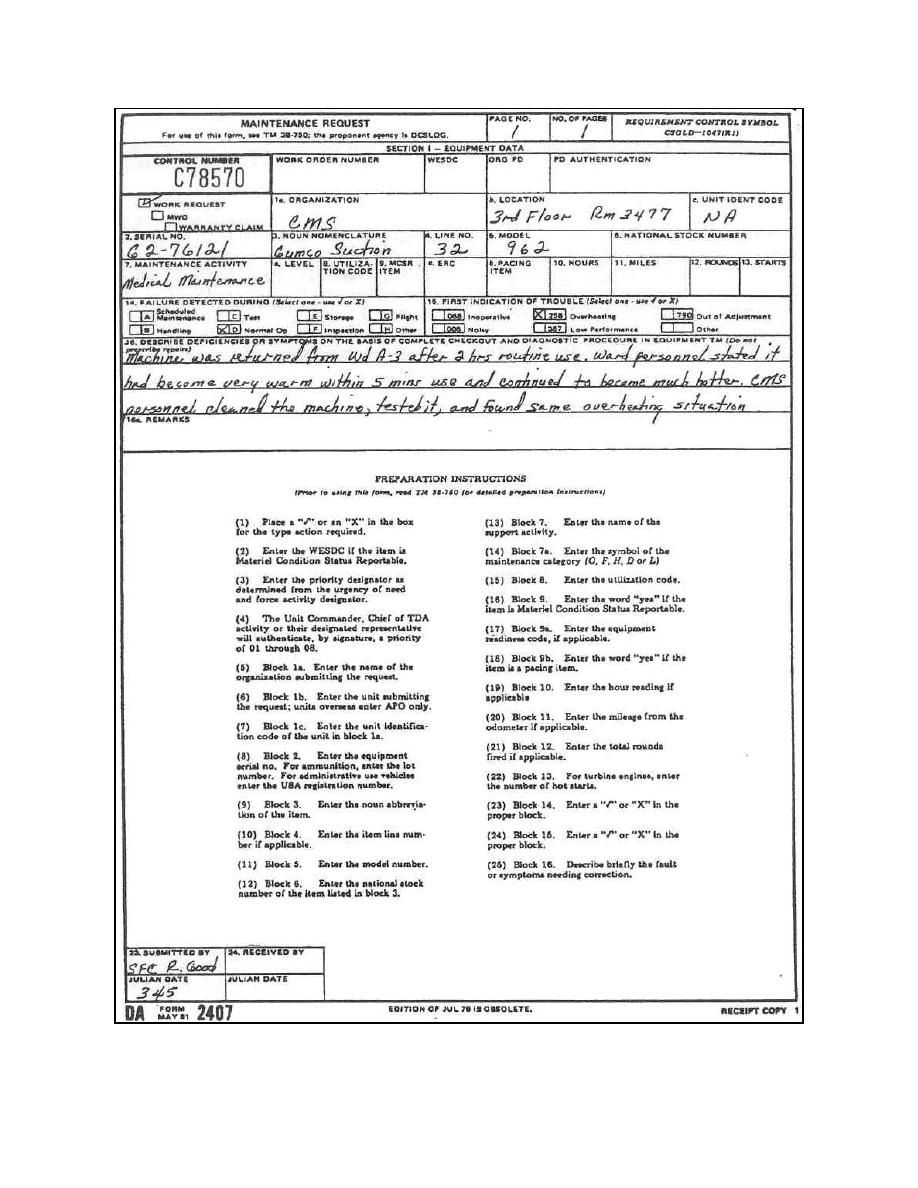 MAINTENANCE REQUEST
For use of this form, see TM 38-750; the proponent agency is DCSLOG.
PAGE NO.
1
NO. OF PAGES
1
REQUIREMENT CONTROL SYMBOL
CSGLD-1047(R1)
SECTION I - EQUIPMENT DATA
CONTROL NUMBER
C78570
WORK ORDER NUMBER
WESDC
ORG PD
PD AUTHENTICATION
WORK REQUEST
MWO
WARRANTY CLAIM
1a. ORGANIZATION
CMS
b. LOCATION
3rd Floor Rm 3477
c. UNIT IDENT CODE
NA
2. SERIAL NO.
G2-76121
3. NOUN NOMENCLATURE
Gumco Suction
4. LINE NO.
32
5. MODEL
962
6. NATIONAL STOCK NUMBER
7. MAINTENANCE ACTIVITY
Medical Maintenance
a. LEVEL
8. UTILIZA-
TION CODE
9. MCSR
ITEM
a. ERC
b. PACING
ITEM
10. HOURS
11. MILES
12. ROUNDS
13. STARTS
14. FAILURE DETECTED DURING (Select one - use √ or X)
A Scheduled Maintenance
C Test
E Storage
G Flight
B Handling
X D Normal Op
F Inspection
H Other
15. FIRST INDICATION OF TROUBLE (Select one - use √ or X)
Inoperative
X 258 Overheating
790 Out of Adjustment
Noisy
387 Low Performance
Other
DESCRIBE DEFICIENCIES OR SYMPTOMS ON THE BASIS OF COMPLETE CHECKOUT AND DIAGNOSTIC PROCEDURE IN EQUIPMENT TM (Do not
prescribe repairs)
Machine was returned from Wd A-3 after 2 hrs routine use. Ward personnel stated it
had become very warm within 5 mins use and continued to became much hotter. CMS
personnel cleaned the machine, tested it, and found same overheating situation
16a. REMARKS
PREPARATION INSTRUCTIONS
(Prior to using this form, read TM 38-750 for detailed preparation instructions)
(1) Place a "√" or an "X" in the box
for the type action required.
(2) Enter the WESDC if the item is
Materiel Condition Status Reportable.
(3) Enter the priority designator as
determined from the urgency of need
and force activity designator.
(4) The Unit Commander, Chief of TDA
activity or their designated representative
will authenticate, by signature, a priority
of 01 through 08.
(5) Block 1a. Enter the name of the
organization submitting the request.
(6) Block 1b. Enter the unit submitting
the request; units overseas enter APO only.
(7) Block 1c. Enter the unit identifica-
tion code of the unit in block 1a.
(8) Block 2. Enter the equipment
serial no. For ammunition, enter the lot
number. For administrative use vehicles
enter the USA registration number.
(9) Block 3. Enter the noun abbrevia-
tion of the item.
(10) Block 4. Enter the item line num-
ber if applicable.
(11) Block 5. Enter the model number.
(12) Block 6. Enter the national stock
number of the item listed in block 3.
(13) Block 7. Enter the name of the
support activity.
(14) Block 7a. Enter the symbol of the
maintenance category (O, F, H, D or L)
(15) Block 8. Enter the utilization code.
(16) Block 9. Enter the word "yes" if the
item is Materiel Condition Status Reportable.
(17) Block 9a. Enter the equipment
readiness code, if applicable.
(18) Block 9b. Enter the word "yes" if the
item is a pacing item.
(19) Block 10. Enter the hour reading if
applicable
(20) Block 11. Enter the mileage from the
odometer if applicable.
(21) Block 12. Enter the total rounds
fired if applicable.
(22) Block 13. For turbine engines, enter
the number of hot starts.
(23) Block 14. Enter a "√" or "X" in the
proper block.
(24) Block 15. Enter a "√" or "X" in the
proper block.
(25) Block 16. Describe briefly the fault
or symptoms needing correction.
23. SUBMITTED BY
SFC R. Good
24. RECEIVED BY
JULIAN DATE
345
JULIAN DATE
DA FORM MAY 81 2407
EDITION OF JUL 79 IS OBSOLETE.
RECEIPT COPY 1